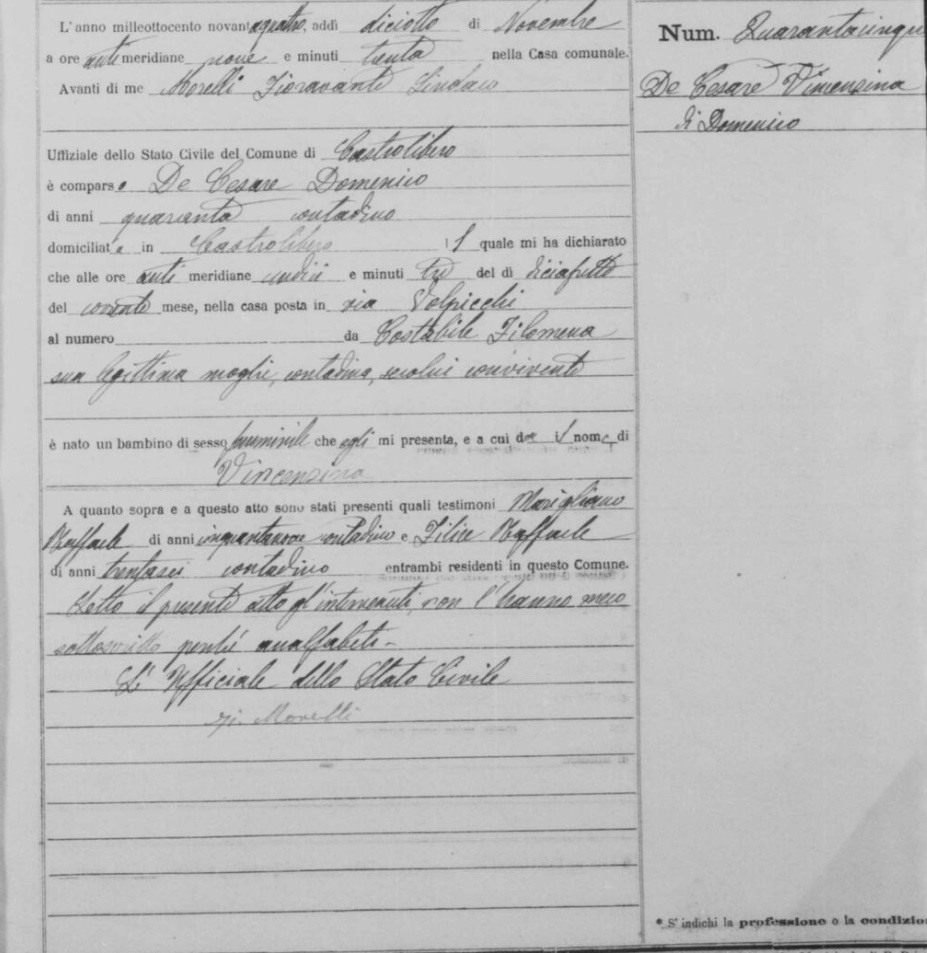 L'anno milleottocento novantaquattro, addì diciotto di Novembre
a ore antimeridiane nove e minuti trenta nella Casa comunale.
Avanti di me Morelli Fioravante Sindaco
Uffiziale dello Stato Civile del Comune di Castrolibero
è comparso De Cesare Domenico
di anni quaranta contadino
domiciliato in Castrolibero il quale mi ha dichiarato
che alle ore anti meridiane undici e minuti tre del dì diciasette
del corrente mese, nella casa posta in via Volpicchi
al numero da Costabile Filomena
sua legittima moglie, contadina, secolui convivente
è nato un bambino di sesso femminile che egli mi presenta, e a cui dà il nome di
Vincenzina
A quanto sopra e a questo atto sono stati presenti quali testimoni Marigliano
Raffaele di anni cinquantanove contadino e Filice Raffaele
di anni trentasei contadino entrambi residenti in questo Comune.
Letto il presente atto gl'intervenuti non l'hanno meco
sottoscritto perché analfabeti -
L'Ufficiale dello Stato Civile
Morelli
Num. Quarantacinque
De Cesare Vincenzina
di Domenico
* S'indichi la professione o la condizio